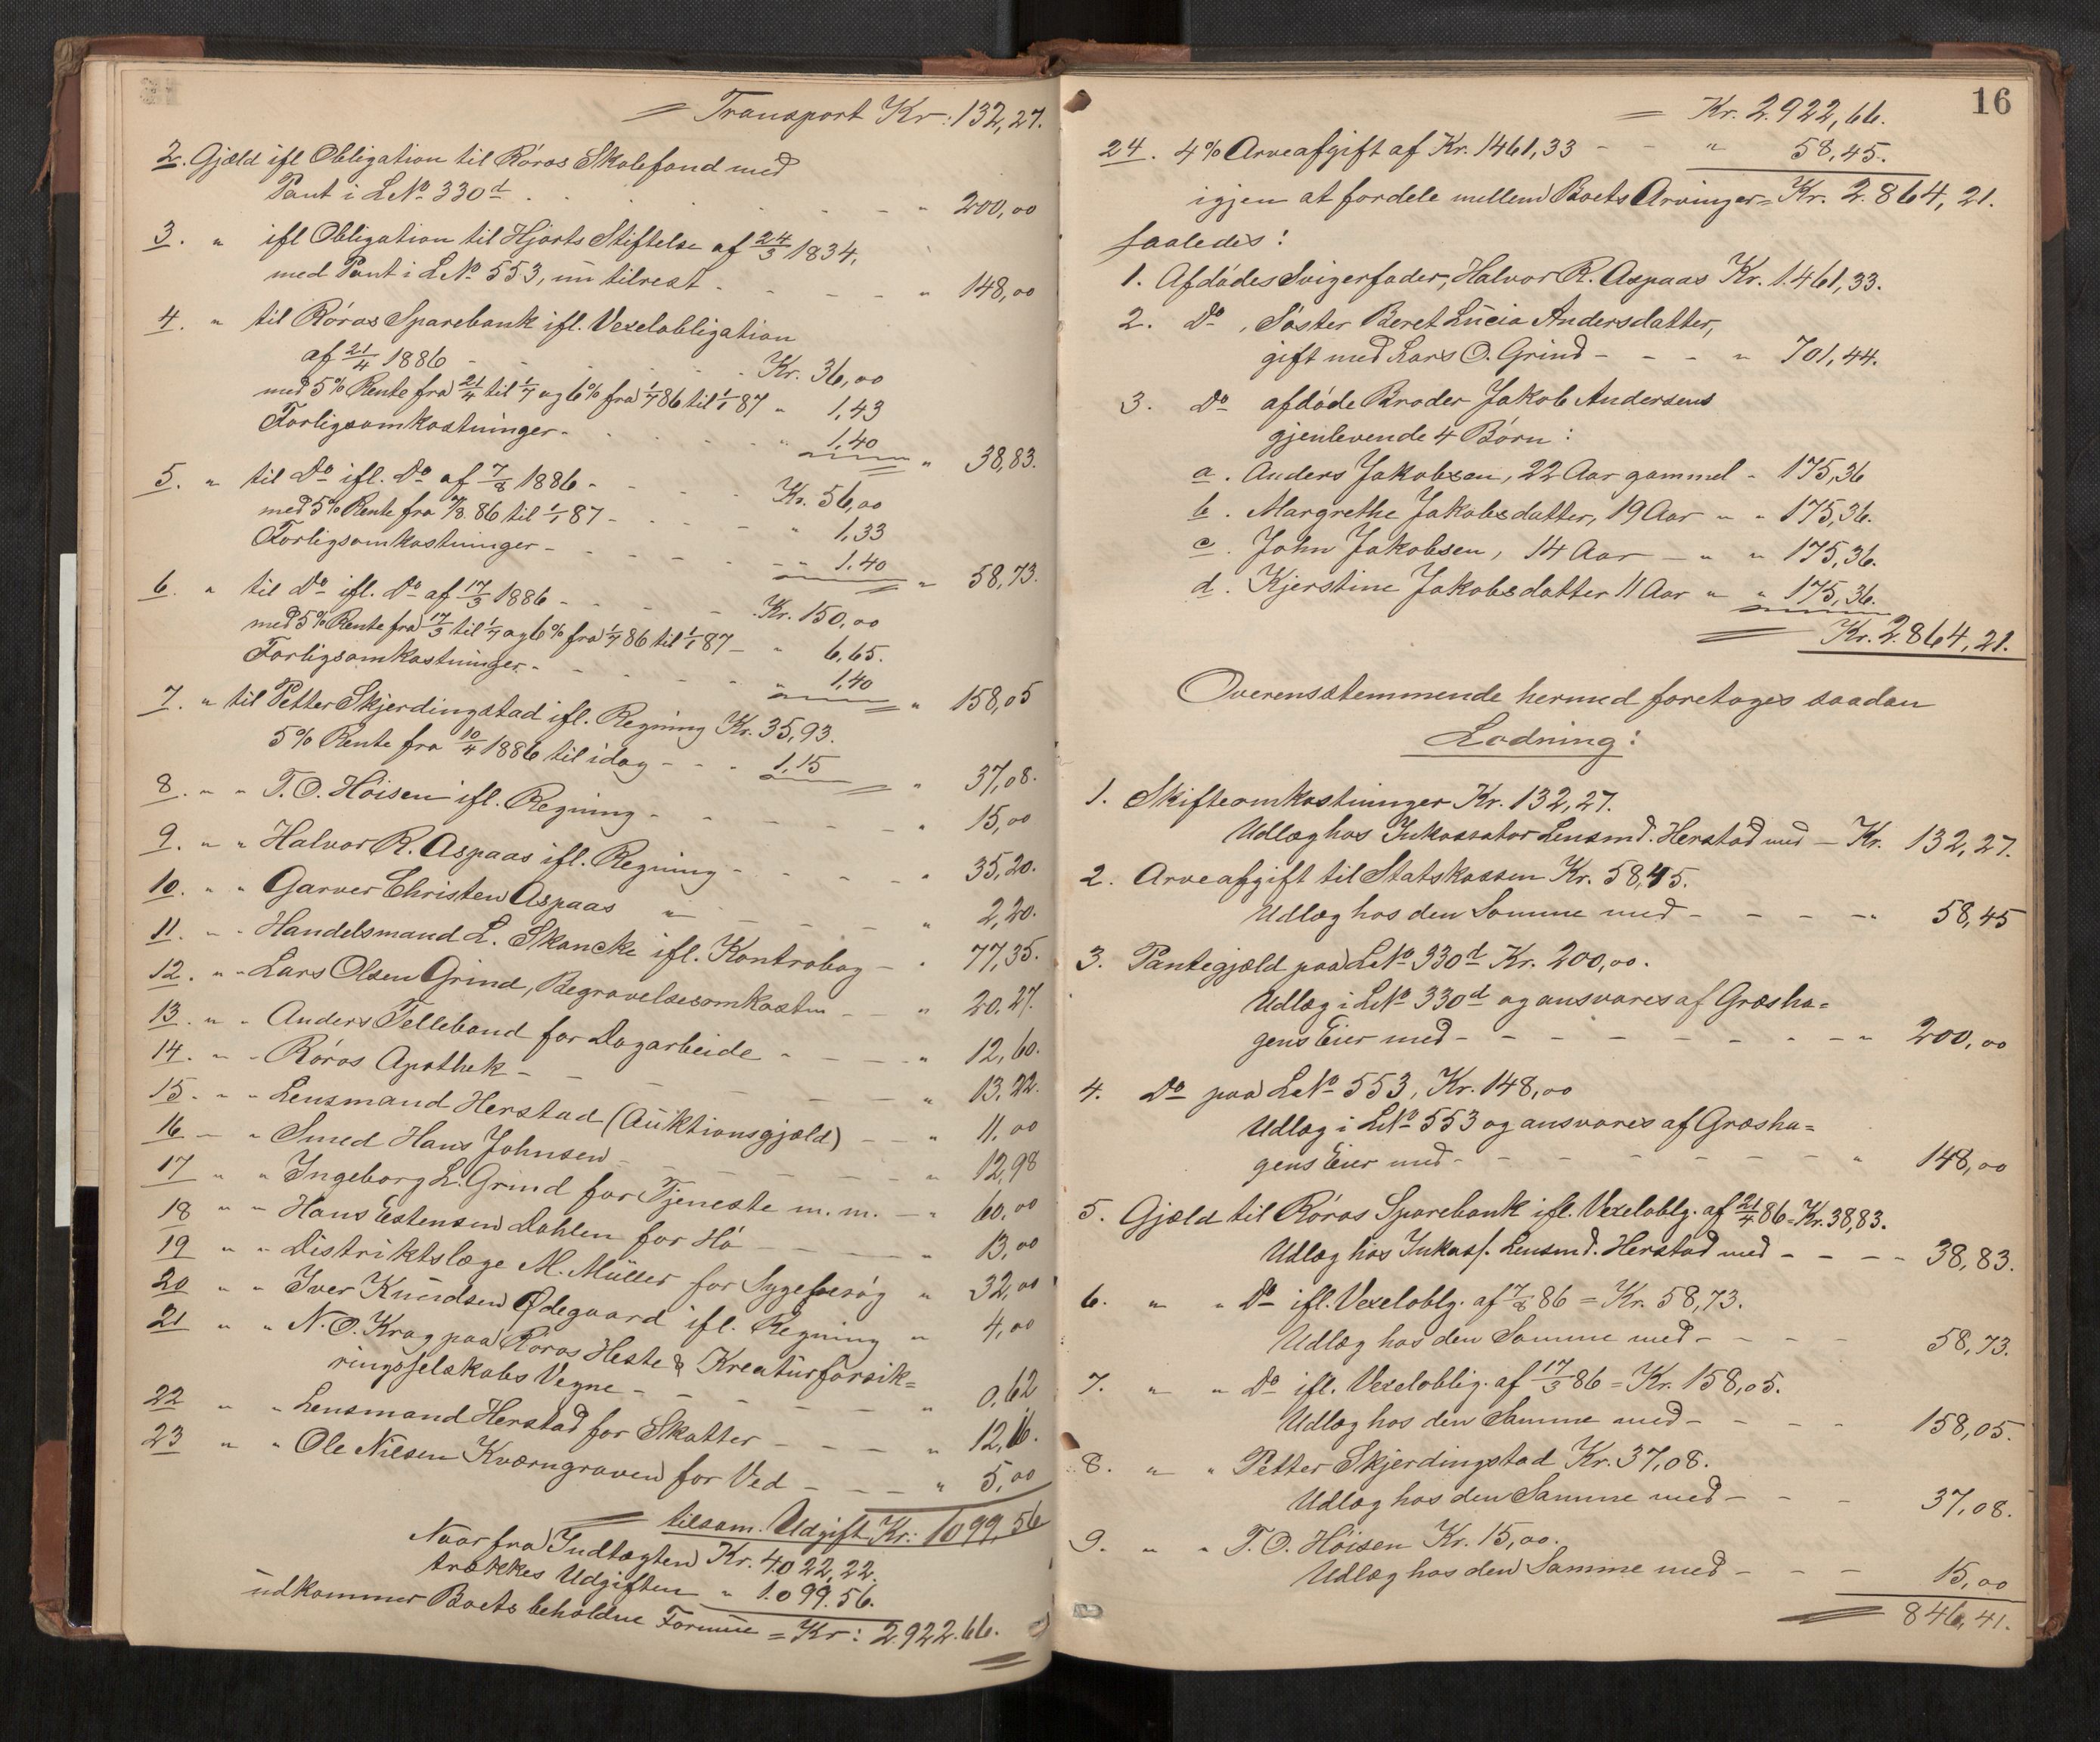 = Transport Kr: 132,27.
2. Gjæld ifl Obligation til Røros Skolefond med
Pant i LNo 330d - - - " 200,00
3. " ifl Obligation til Hjorts Stiftelse af 24/3 1834,
med Pant i LNo 553, nu tilrest - - - " 148,00
4. " til Røros Sparebank ifl. Vexelobligation
af 21/4 1886 - - - Kr. 36,00
med 5% Rente fra 21/4 til 1/7 og 6% fra 1/7 86 til 1/1 87 " 1,43
Forligsomkostninger - - - " 1,40 = " 38,83.
5. " til Do ifl. Do af 7/8 1886 - - - Kr. 56,00
med 5% Rente fra 7/8 86 til 1/1 87 - - - " 1,33
Forligsomkostninger - - - " 1,40 = " 58,73.
6. " til Do ifl. Do af 17/3 1886 - - - Kr. 150,00
med 5% Rente fra 17/3 til 1/7 og 6% fra 1/7 86 til 1/1 87 - " 6,65.
Forligsomkostninger - - - " 1,40 = " 158,05
7. " til Petter Skjerdingstad ifl. Regning Kr. 35,93.
5% Rente fra 10/4 1886 til idag - - - 1,15 = " 37,08.
8. " " T. O. Høisen ifl. Regning - - - " 15,00
9. " " Halvor R. Aspaas ifl. Regning - - - " 35,20.
10. " " Garver Christen Aspaas " - - - " 2,20.
11. " " Handelsmand L. Skancke ifl. Kontrabog - " 77,35.
12. " " Lars Olsen Grind, Begravelsesomkostn - - " 20,27.
13. " " Anders Tellebond for Dagarbeide - - - " 12,60.
14. " " Røros Apothek - - - " 13,22.
15. " " Lensmand Herstad (Auktionsgjæld) - - " 11,00
16 - " Smed Hans Johnsen - - - " 12,98
17 " " Ingeborg L. Grind for Tjeneste m. m. - " 60,00
18 " " Hans Estensen Dahlen for Hø - - - " 13,00
19 " " Distriktslæge M. Müller for Sygebesøg " 32,00
20 " " Iver Knudsen Ødegaard ifl. Regning " 4,00
21 " " N. O. Krag paa Røros Heste & Kreaturforsik=
ringsselskabs Vegne - - - " 0,62
22 " " Lensmand Herstad for Skatter - - - " 12,16.
23 " " Ole Nilsen Kværngraven for Ved - - - " 5,00
= tilsam. Udgift Kr: 1099,56
Naar fra Indtægten Kr. 4.022,22.
trækkes Udgiften " 1.099.56.
udkommer Boets beholdne Formue = Kr: 2.922.66.
16
= Kr. 2.922,66.
24. 4% Arveafgift af Kr. 1461,33 - - " 58,45.
igjen at fordele mellem Boets Arvinger = Kr. 2.864,21.
saaledes:
1. Afdødes Svigerfader, Halvor R. Aspaas Kr. 1.461,33.
2. Do, Søster Beret Lucia Andersdatter,
gift med Lars O. Grind - - - " 701,44.
3. Do afdøde Broder Jakob Andersens
gjenlevende 4 Børn:
a. Anders Jakobsen, 22 Aar gammel - 175,36
b. Margrethe Jakobsdatter, 19 Aar " " 175,36.
c. John Jakobsen, 14 Aar - " " 175,36.
d. Kjerstine Jakobsdatter 11 Aar " " 175,36.
= Kr. 2.864,21.
Overensstemmende hermed foretages saadan
Lodning:
1. Skifteomkostninger Kr. 132,27.
Udlæg hos Inkassator Lensmd. Herstad med - Kr. 132,27.
2. Arveafgift til Statskassen Kr. 58,45.
Udlæg hos den Samme med - - - " 58,45
3. Pantegjæld paa LNo 330d Kr. 200,00.
Udlæg i LNo 330d og ansvares af Græsha=
gens Eier med - - - " 200,00
4. Do paa LNo 553, Kr. 148,00
Udlæg i LNo 553 og ansvares af Græsha=
gens Eier med - - - " 148,00
5. Gjæld til Røros Sparebank ifl. Vexeloblg. af 21/4 86 = Kr. 38,83.
Udlæg hos Inkass. Lensmd. Herstad med - - - 38,83.
6. " " Do ifl. Vexeloblg. af 7/8 86 = Kr. 58,73.
Udlæg hos den Samme med - - - 58,73.
7. " " Do ifl. Vexeloblig. af 17/3 86 = Kr. 158,05.
Udlæg hos den Samme med - - - 158,05.
8. " " Petter Skjerdingstad Kr. 37,08.
Udlæg hos den Samme med - - - 37,08.
9. " " T. O. Høisen Kr. 15,00.
Udlæg hos den Samme med - - - 15,00
= 846,41.